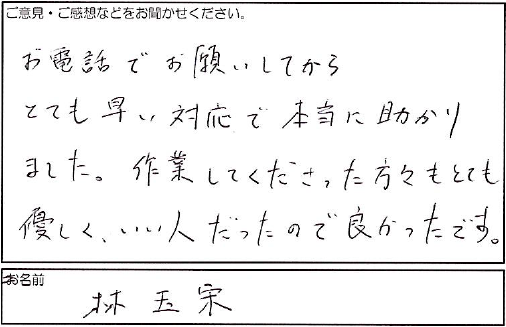 ご意見・ご感想などをお聞かせください。
お電話でお願いしてから
とても早い対応で本当に助かり
ました。作業してくださった方々もとても
優しく、いい人だったので良かったです。
お名前
林 玉宗